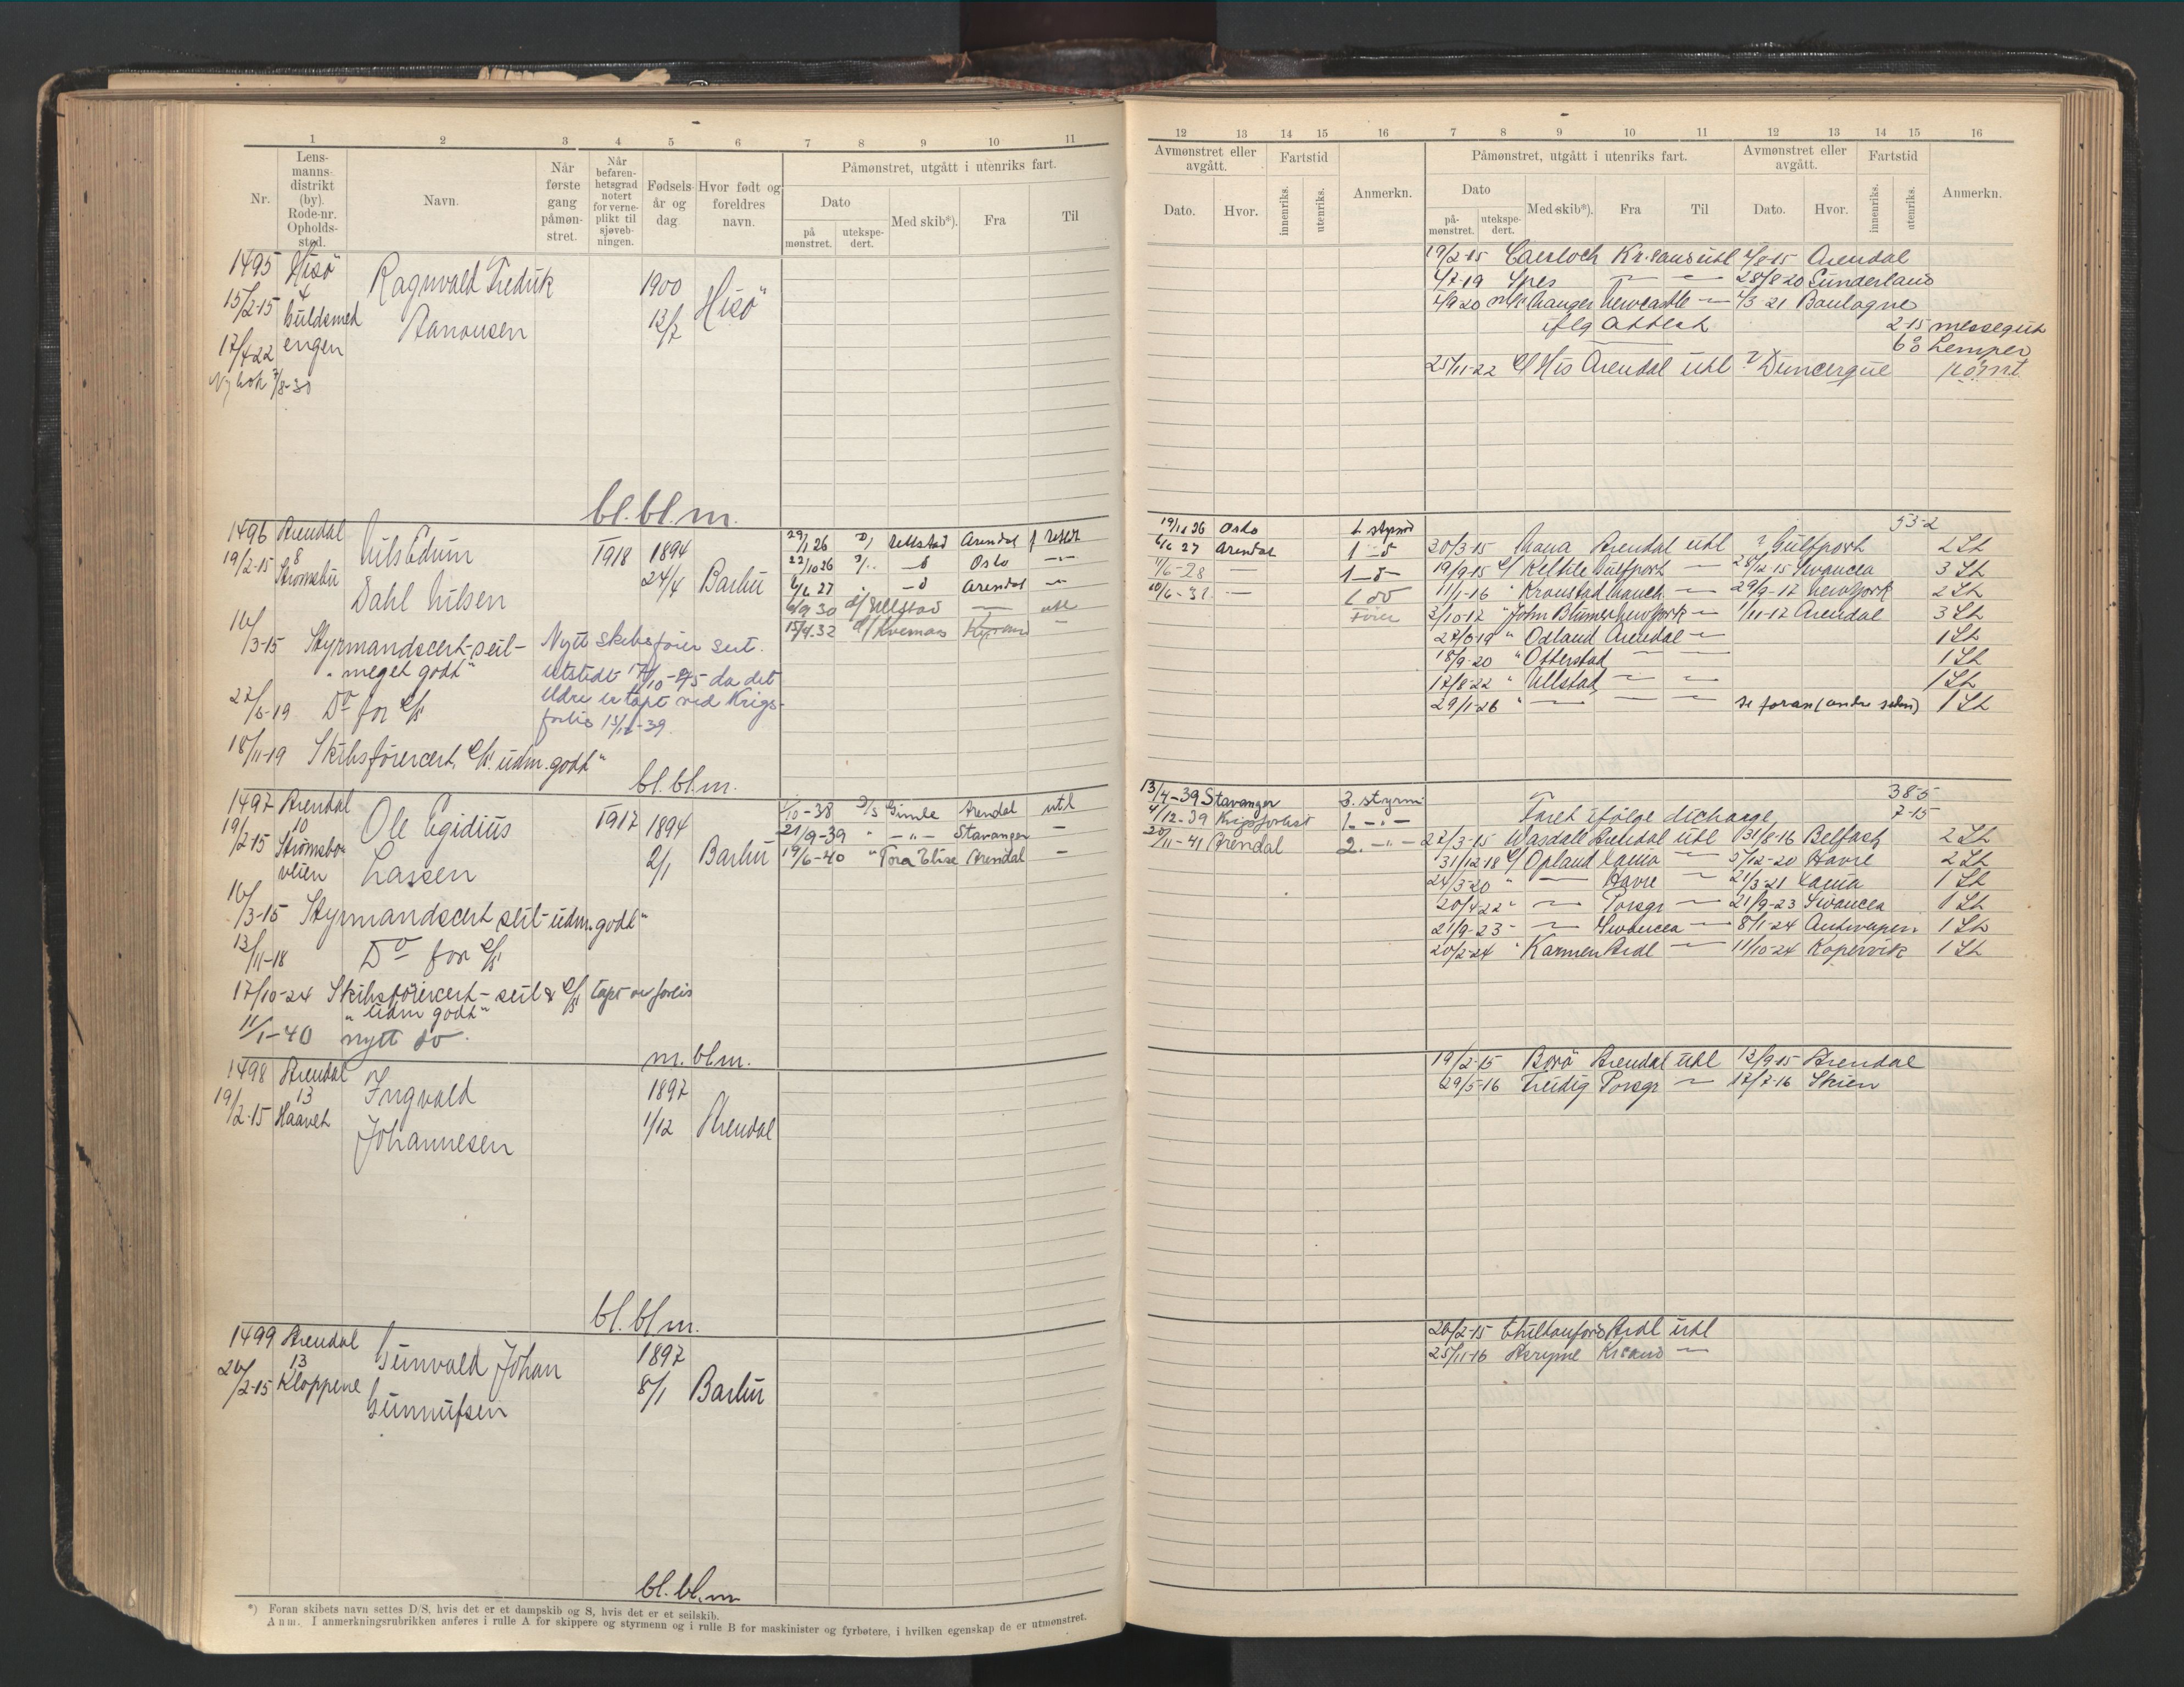 1 2 3 4 5 6 7 8 9 10 11
Nr.
Lens-
manns-
distrikt
(by).
Rode-nr.
Opholds-
sted.
Navn.
Når
første
gang
påmøn-
stret.
Når
befaren-
hetsgrad
notert
for verne-
plikt til
sjøveb-
ningen.
Fødsels-
år og
dag.
Hvor født og
foreldres
navn.
Påmønstret, utgått i utenriks fart.
Dato
på
mønstret.
utekspe-
dert.
Med skib*).
Fra
Til
1495 Hisö
4
15/2-15 Guldsmed
engen
17/4 22
Ny bok 7/8-30
Ragnvald Fredrik
Aanonsen
1900
13/7
Hisö
bl.bl.m.
1496 Arendal
19/2-15 8
Strømsbu
Nils Edvin
Dahl Nilsen
1918 1894
24/4 Barbu
29/1 26 D/ Ullstad Arendal
22/10 26 Oslo
6/6 27 Arendal
6/9 30 D/ Ullstad utl
15/9.32 D/ Kvernaas
16/3-15 Styrmandscert-seil-
"meget godt"
27/6-19 Do for D/S
18/11-19 Skibsförercert. D/S. "udm. godt"
Nytt skibsfører sert.
utstedt 17/10-45 da det
eldre er tapt ved Krigs-
forlis 13/11-39.
bl.bl.m.
1497 Arendal
19/2-15 10
Strömsbo-
veien
Ole Egidius
Lassen
1917 1894
2/1 Barbu
/10-38 D/S Gimle Arendal utl
21/9-39 " -"- Stavanger -
19/6-40 " Tora Elise Arendal -
16/3-15 Styrmandscert seil- "udm. godt"
13/11-18 Do for D/S
17/10-24 Skibsförercert- seil & D/S tapt ve forlis
"Udm godt"
11/1-40 nytt do.
m. blm.
1498 Arendal
19/2-15 13
Haavet
Ingvald
Johannesen
1897
1/12 Arendal
bl. bl m.
1499 Arendal
20/2-15 13
Kloppene
Gunvald Johan
Gunnufsen
1897
8/1 Barbu
bl. bl. m
*) Foran skibets navn settes D/S, hvis det er et dampskib og S, hvis det er et seilskib.
Anm. I anmerkningsrubrikken anføres i rulle A for skippere og styrmenn og i rulle B for maskinister og fyrbøtere, i hvilken egenskap de er utmønstret.
12 13 14 15 16 7 8 9 10 11 12 13 14 15 16
Avmønstret eller
avgått.
Dato.
Hvor.
Fartstid
innenriks.
utenriks.
Anmerkn.
Påmønstret, utgått i utenriks fart.
Dato
på-
mønstret.
utekspe-
dert.
Med skib*).
Fra
Til
Avmønstret eller
avgått.
Dato.
Hvor.
Fartstid
innenriks.
utenriks.
Anmerkn.
19/2-15 Caerloch Kr.sand utl 4/8-15 Arendal
4/7-19 Ypes — — 28/8-20 Sunderland
4/9 20 m/s Hauger Newcastle — 4/3 21 Boulogne
iflg attest 2-15 messegut
60 Lemper
25/11-22 D/ His Arendal utl ? Duncerque
19/11 26 Oslo 1. styrm
6/6 27 Arendal
7/6-28 —
10/6-31 —
Fører
53-2
20/3-15 Mana Arendal utl ? Gulfport 2 St
19/9-15 D/ Gulfport — 28/12-15 Swancea 3 St
11/1-16 " Kronstad — 29/9-17 Newyork 2 St
3/10-17 " John Blumer Newyork — 1/11-17 Arendal 3 St
27/6 19 " Odland Arendal — 1 St
18/9-20 " Otterstad — — 1 St
17/8-22 " Ullstad — — 1 St
29/1-26 " — — — se foran (andre siden) 1 St
13/4-39 Stavanger 3. styrm
4/12-39 Krigsforlist 1. -"-
20/11-41 Arendal 2. -"-
38-5
Faret ifölge dicharge 7-15
27/3-15 Wasdale Arendal utl 31/8-16 Belfast 2 St
31/12 18 D/ Opland — 5/12-20 Havre 2 St
24/3-20 " — Havre — 21/3-21 1 St
20/4-22 " — Porsgr — 21/9-23 Swancea 1 St
21/9-23 - — Swancea — 8/1-24 Antwerpen 1 St
20/2-24 " Karmen Ardl — 11/10-24 Kopervik 1 St
19/2-15 Borö Arendal utl 12/9-15 Arendal
29/5-16 Freidig Porsgr — 17/7-16 Skien
20/2-15 Ardl utl
25/11-16 Krsand —